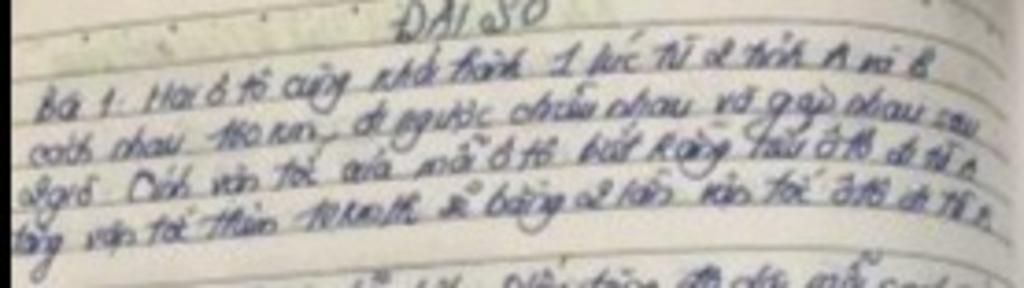 ĐẠI SỐ
Bài 1. Hai ô tô cùng khởi hành 1 lúc từ 2 tỉnh A và B
cách nhau 160 km, đi ngược chiều nhau và gặp nhau sau
2 giờ. Tính vận tốc của mỗi ô tô biết rằng nếu ô tô đi từ A
tăng vận tốc thêm 10 km/h sẽ bằng 2 lần vận tốc ô tô đi từ